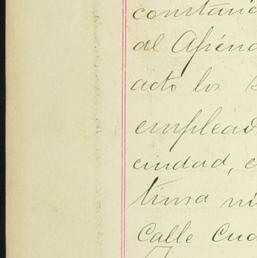 constanc
al Apénd
acto los
emplead
ciudad, e
tima ni
Calle Cua